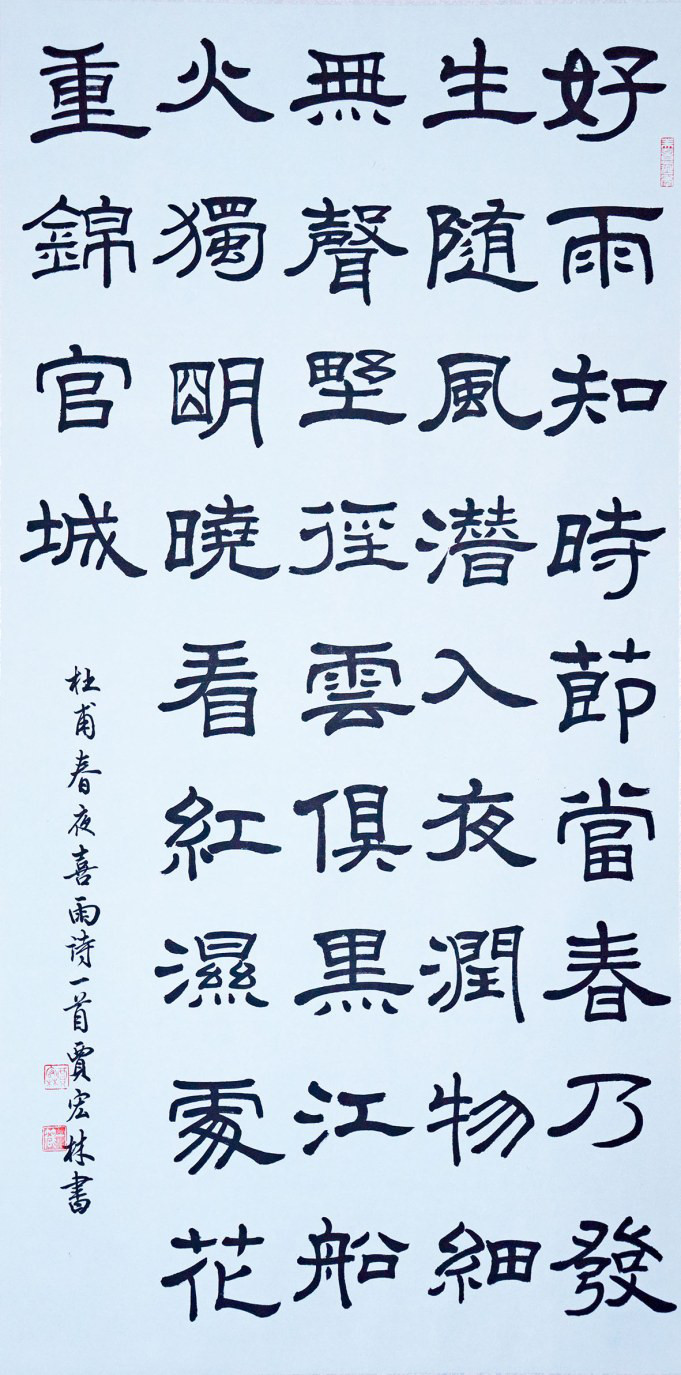 好雨知時節當春乃發
生随風潛入夜潤物細
無聲野徑雲俱黑江船
火獨明曉看紅濕處花
重錦官城
杜甫春夜喜雨诗一首賈宏林書